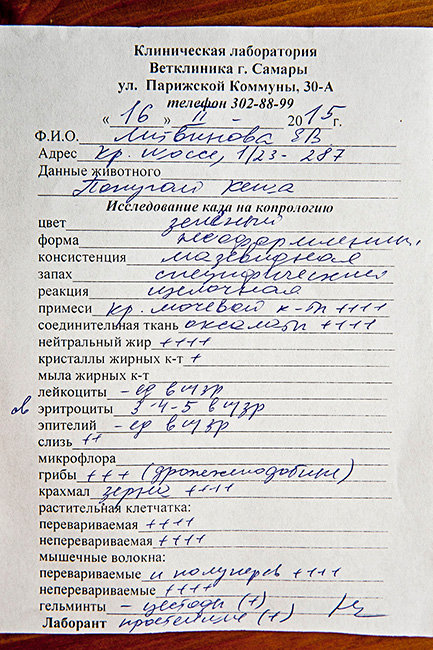 Клиническая лаборатория
Ветклиника г. Самары
ул. Парижской Коммуны, 30-А
телефон 302-88-99
« 16 » II - 2015г.
Ф.И.О. Литвинова ЗВ
Адрес Кр. шоссе, 1/23- 287
Данные животного
Попугай Кеша
Исследование кала на копрологию
цвет зеленый
форма неоформленный
консистенция мазевидная
запах специфический
реакция щелочная
примеси кр. мочевой к-ты ++++
соединительная ткань оксалаты ++++
нейтральный жир ++++
кристаллы жирных к-т +
мыла жирных к-т
лейкоциты - ед в п/зр
эритроциты 3-4-5 в п/зр
эпителий - ед в п/зр
слизь ++
микрофлора
грибы +++ (дрожжеподобные)
крахмал зерна ++++
растительная клетчатка:
перевариваемая ++++
неперевариваемая ++++
мышечные волокна:
перевариваемые и полуперев ++++
неперевариваемые ++++
гельминты - цестоды (+)
Лаборант простейшие (+)